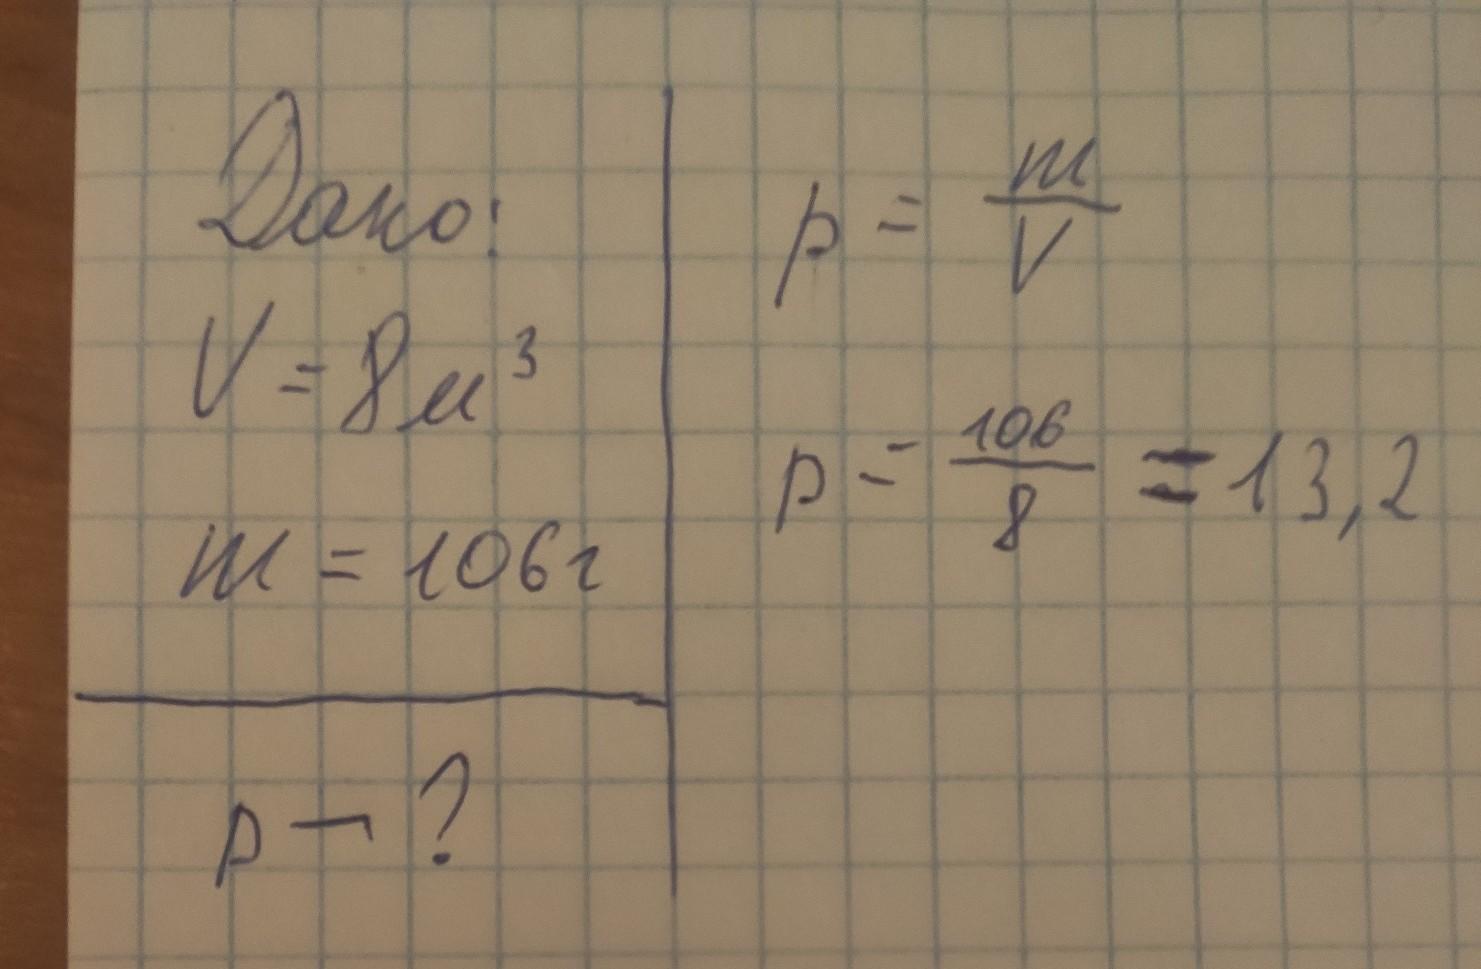 Дано:
V = 8м³
m = 106г
p - ?
p = m/V
p = 106/8 = 13,2